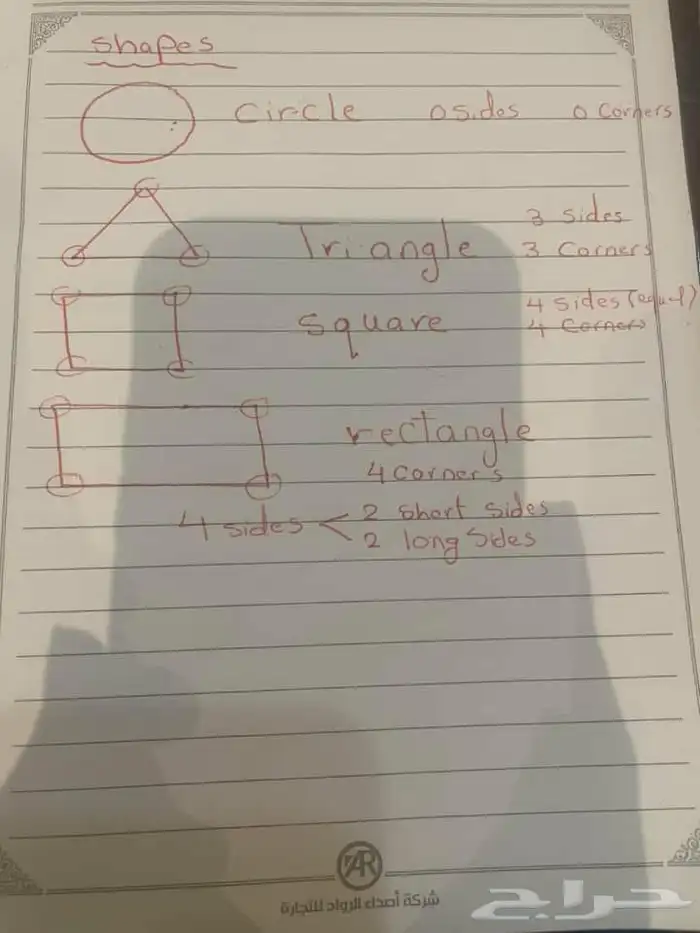 Shapes
Circle 0 sides 0 Corners
Triangle 3 sides
3 Corners
square 4 sides (equal)
4 Corners
rectangle
4 corners
4 sides < 2 short sides
2 long sides
AR
شركة أصداء الرواد للتجارة
حراج